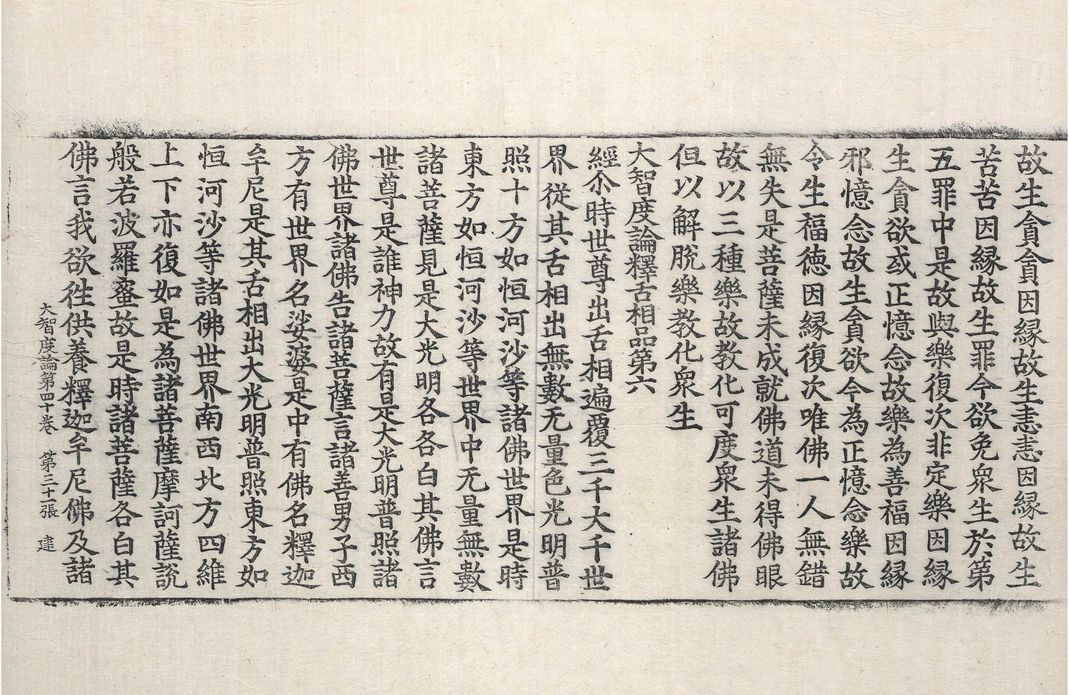 故生貪貪因縁故生恚恚因縁故生
苦苦因縁故生罪今欲免衆生於第
五罪中是故與樂復次非定樂因縁
生貪欲或正憶念故樂為善福因縁
邪憶念故生貪欲今為正憶念樂故
令生福徳因縁復次唯佛一人無錯
無失是菩薩未成就佛道未得佛眼
故以三種樂故教化可度衆生諸佛
但以解脱樂教化衆生
大智度論釋舌相品第六
經尒時世尊出舌相遍覆三千大千世
界從其舌相出無數无量色光明普
照十方如恒河沙等諸佛世界是時
東方如恒河沙等世界中无量無數
諸菩薩見是大光明各各白其佛言
世尊是誰神力故有是大光明普照諸
佛世界諸佛告諸菩薩言諸善男子西
方有世界名娑婆是中有佛名釋迦
牟尼是其舌相出大光明普照東方如
恒河沙等諸佛世界南西北方四維
上下亦復如是為諸菩薩摩訶薩説
般若波羅蜜故是時諸菩薩各白其
佛言我欲往供養釋迦牟尼佛及諸
大智度論第四十卷 第三十一張 建